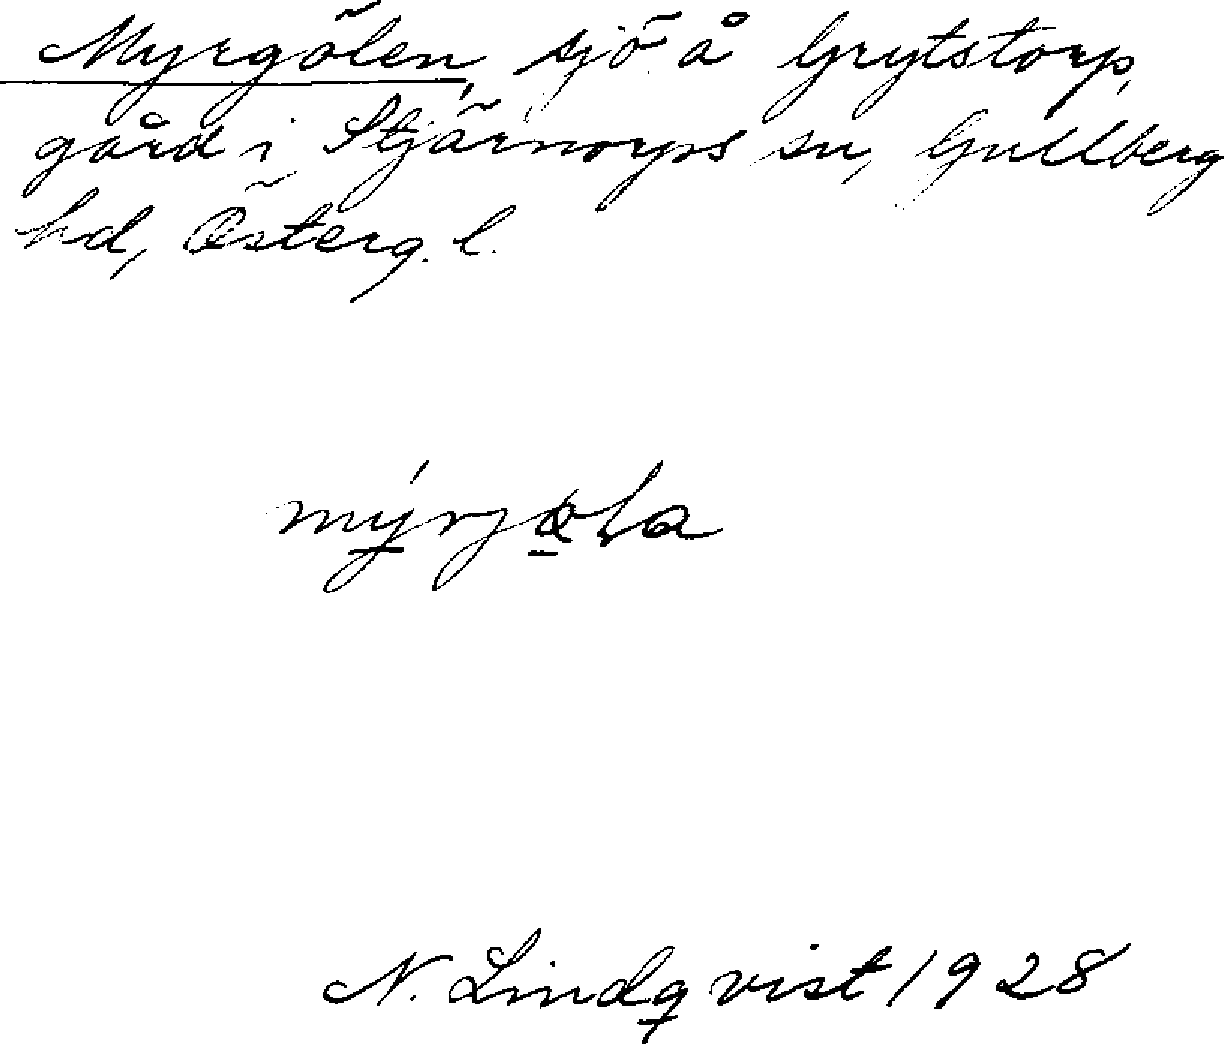 Myrgölen, sjö å Grytstorp,
gård i Stjärnorps sn, Gullberg
hd, Österg. l.
N. Lindqvist 1928